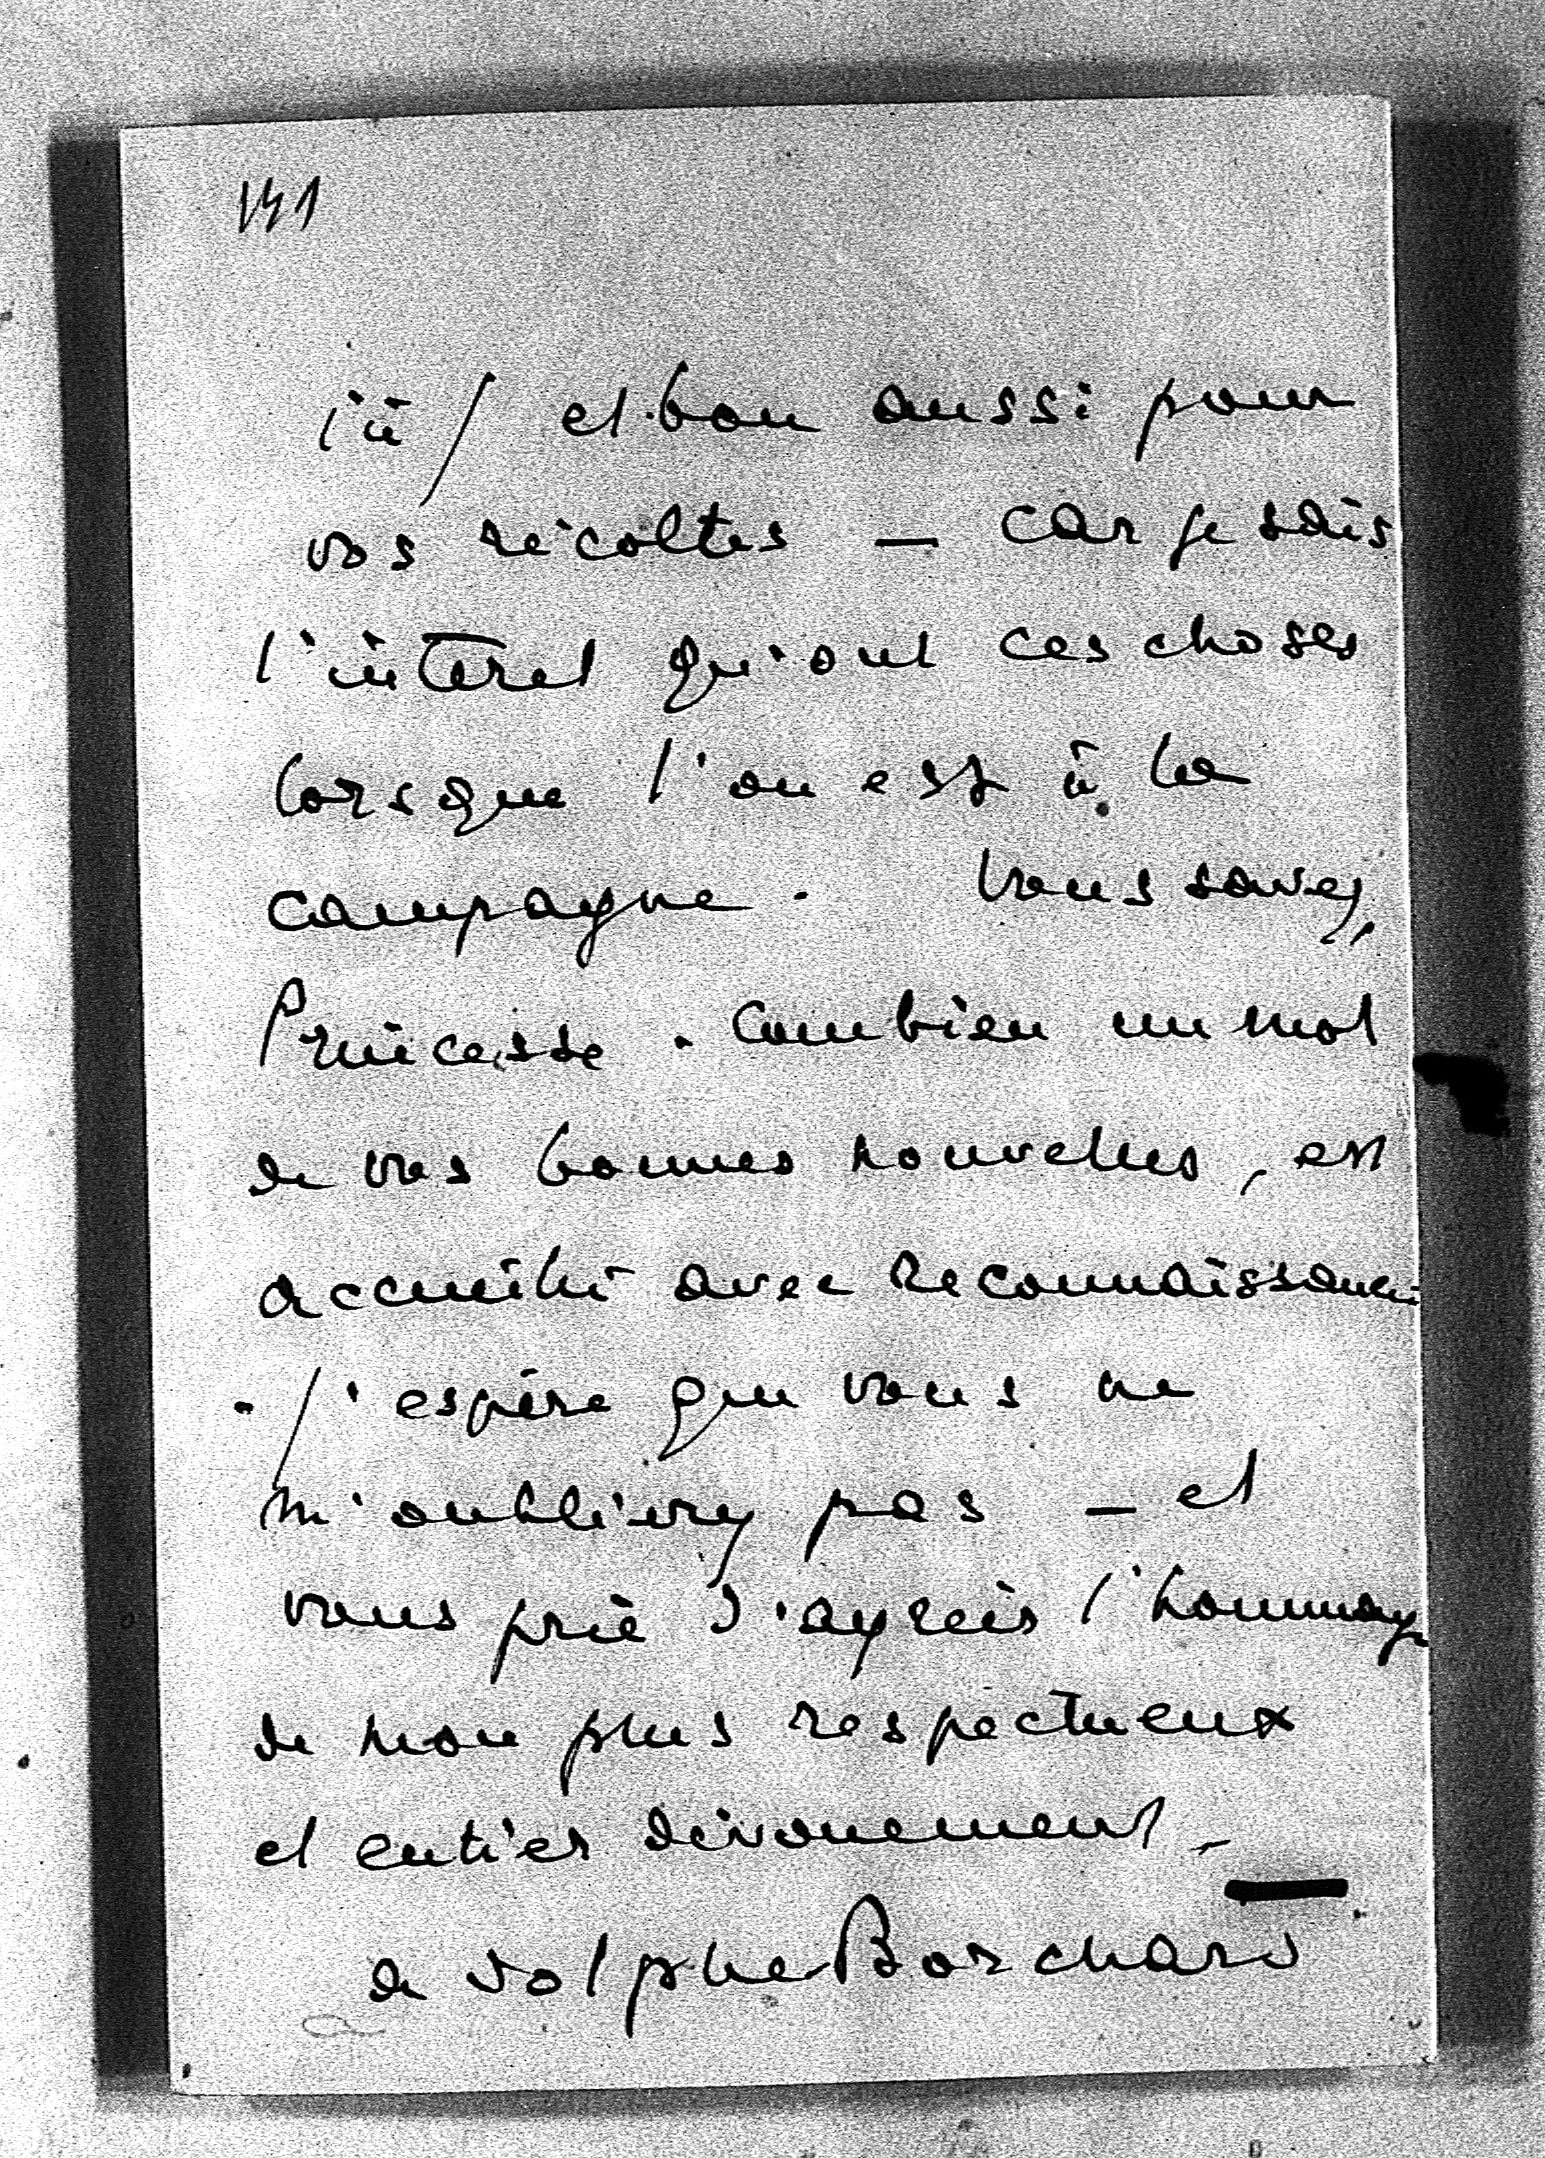 141
ici / et bon aussi pour
vos récoltes — car je sais
l'intérêt qu'ont ces choses
lorsque l'on est à la
campagne. Vous savez,
Princesse. combien un mot
de vos bonnes nouvelles, est
accueilli avec reconnaissance
. J'espère que vous ne
m'oublierez pas — et
vous prie d'agréer l'hommage
de mon plus respectueux
et entier dévouement —
Adolphe Borchard